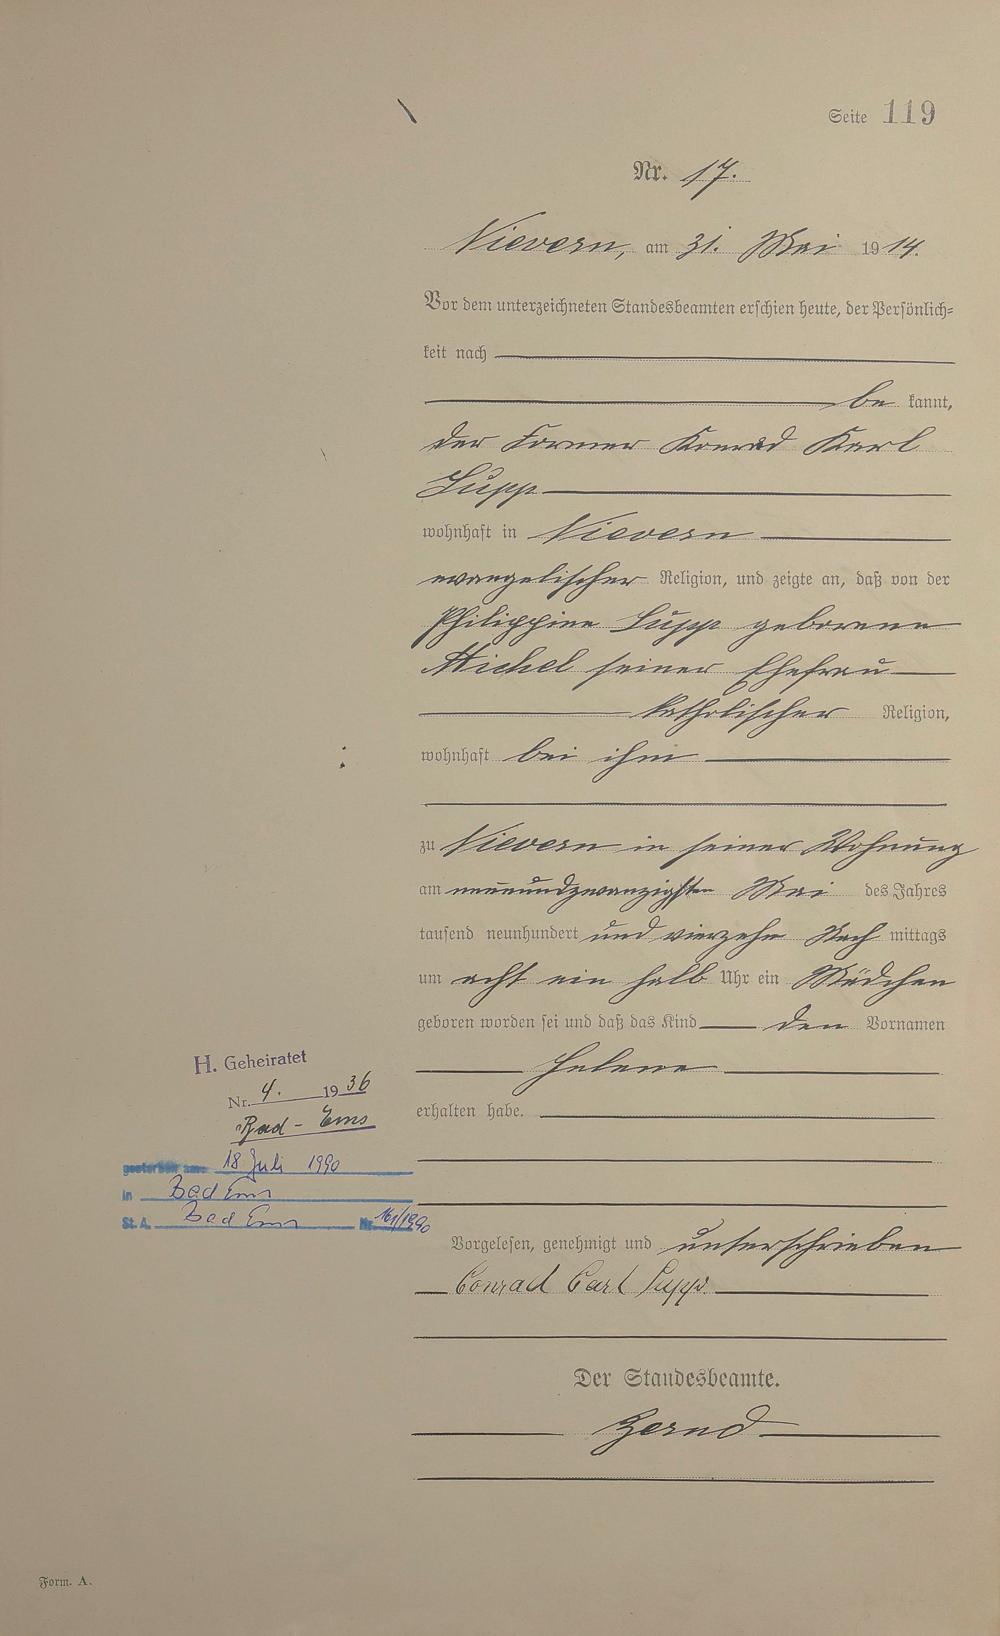 Seite 119
Nr. 17.
Nievern, am 31. Mai 1914.
Vor dem unterzeichneten Standesbeamten erschien heute, der Persönlich-
keit nach
be kannt,
der Former Konrad Karl
Lupp
wohnhaft in Nievern
evangelischer Religion, und zeigte an, daß von der
Philippine Lupp geborene
Michel seiner Ehefrau
katholischer Religion,
wohnhaft bei ihm
zu Nievern in seiner Wohnung
am neunundzwanzigsten Mai des Jahres
tausend neunhundert und vierzehn Nach mittags
um acht ein halb Uhr ein Mädchen
geboren worden sei und daß das Kind den Vornamen
Helene
erhalten habe.
H. Geheiratet
Nr. 4. 1936
Bad-Ems
gestorben am: 18 Juli 1990
in Bad Ems
St. A. Bad Ems Nr. 161/1990
Vorgelesen, genehmigt und unterschrieben
Conrad Carl Lupp.
Der Standesbeamte.
Form. A.